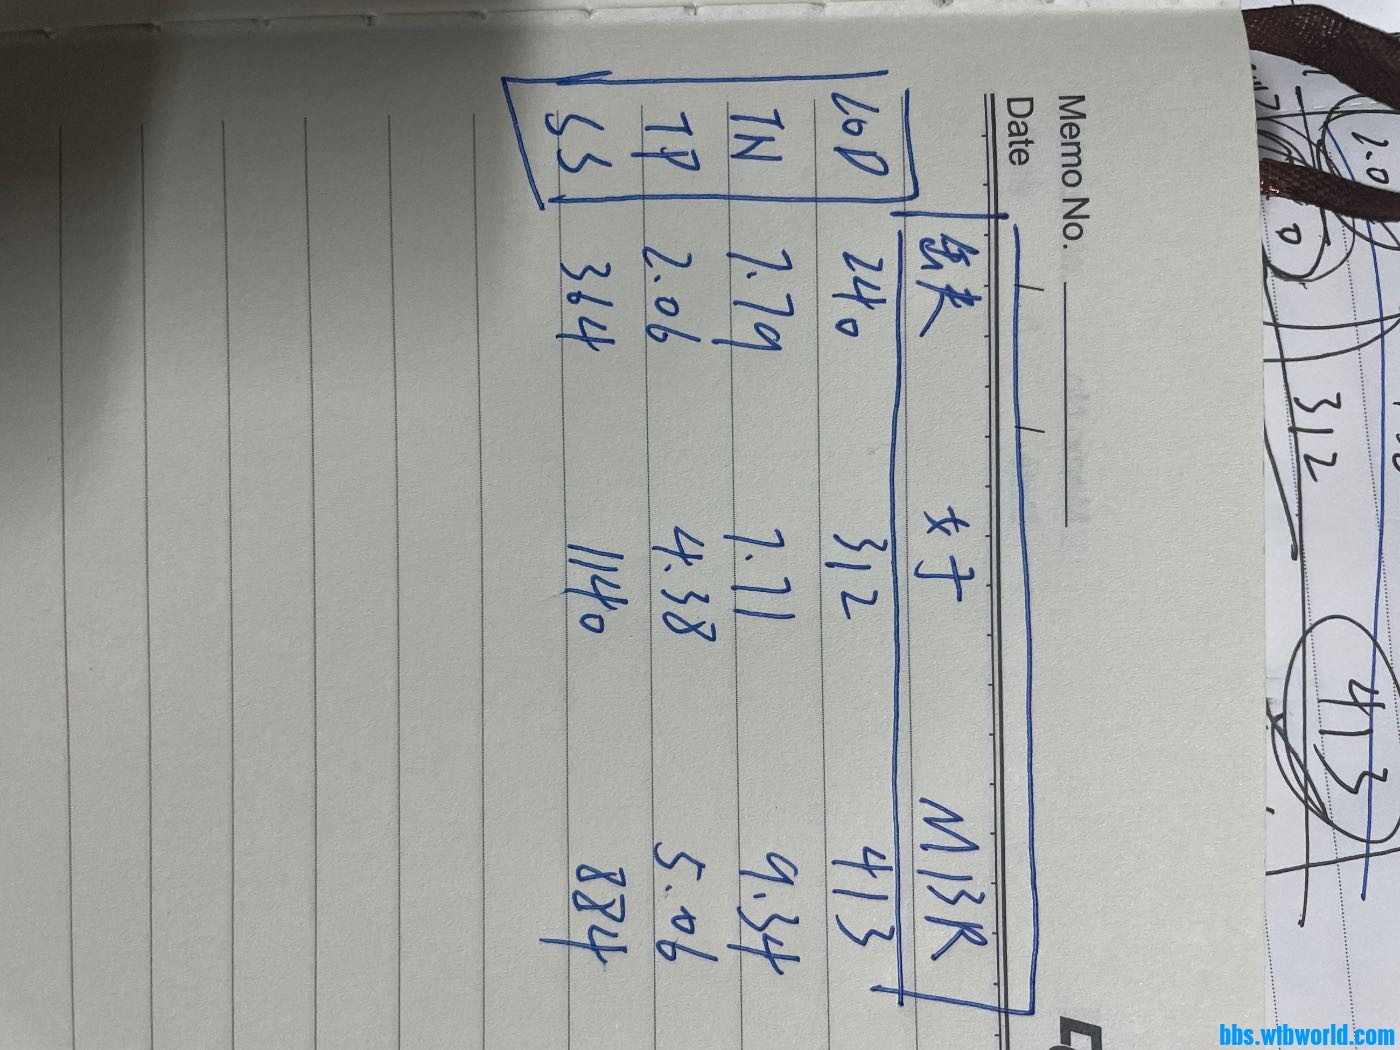 Memo No.
Date / /
MBR
COD 240 312 413
TN 7.79 7.71 9.34
TP 2.06 4.38 5.06
SS 364 1140 884
312 413
bbs.wtbworld.com